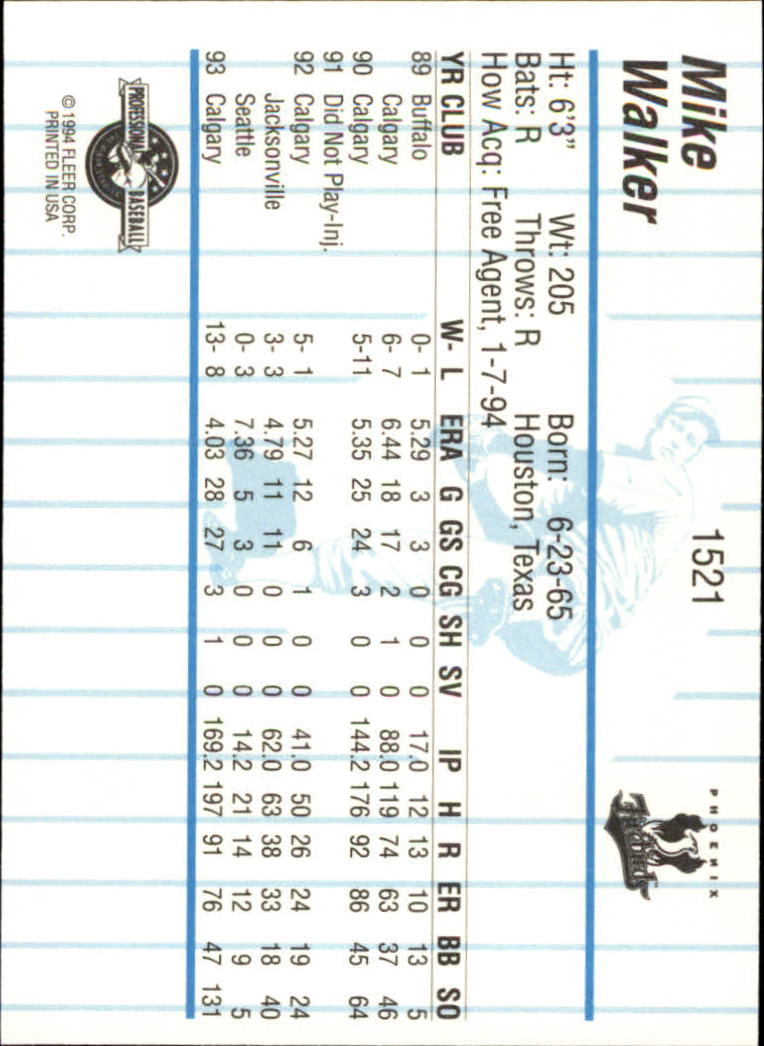 Mike
Walker
1521
PHOENIX
Firebirds
Ht: 6'3" Wt: 205 Born: 6-23-65
Bats: R Throws: R Houston, Texas
How Acq: Free Agent, 1-7-94
YR CLUB W- L ERA G GS CG SH SV IP H R ER BB SO
89 Buffalo 0- 1 5.29 3 3 0 0 0 17.0 12 13 10 13 5
Calgary 6- 7 6.44 18 17 2 1 0 88.0 119 74 63 37 46
90 Calgary 5-11 5.35 25 24 3 0 0 144.2 176 92 86 45 64
91 Did Not Play-Inj.
92 Calgary 5- 1 5.27 12 6 1 0 0 41.0 50 26 24 19 24
Jacksonville 3- 3 4.79 11 11 0 0 0 62.0 63 38 33 18 40
Seattle 0- 3 7.36 5 3 0 0 0 14.2 21 14 12 9 5
93 Calgary 13- 8 4.03 28 27 3 1 0 169.2 197 91 76 47 131
PROFESSIONAL BASEBALL
© 1994 FLEER CORP.
PRINTED IN USA